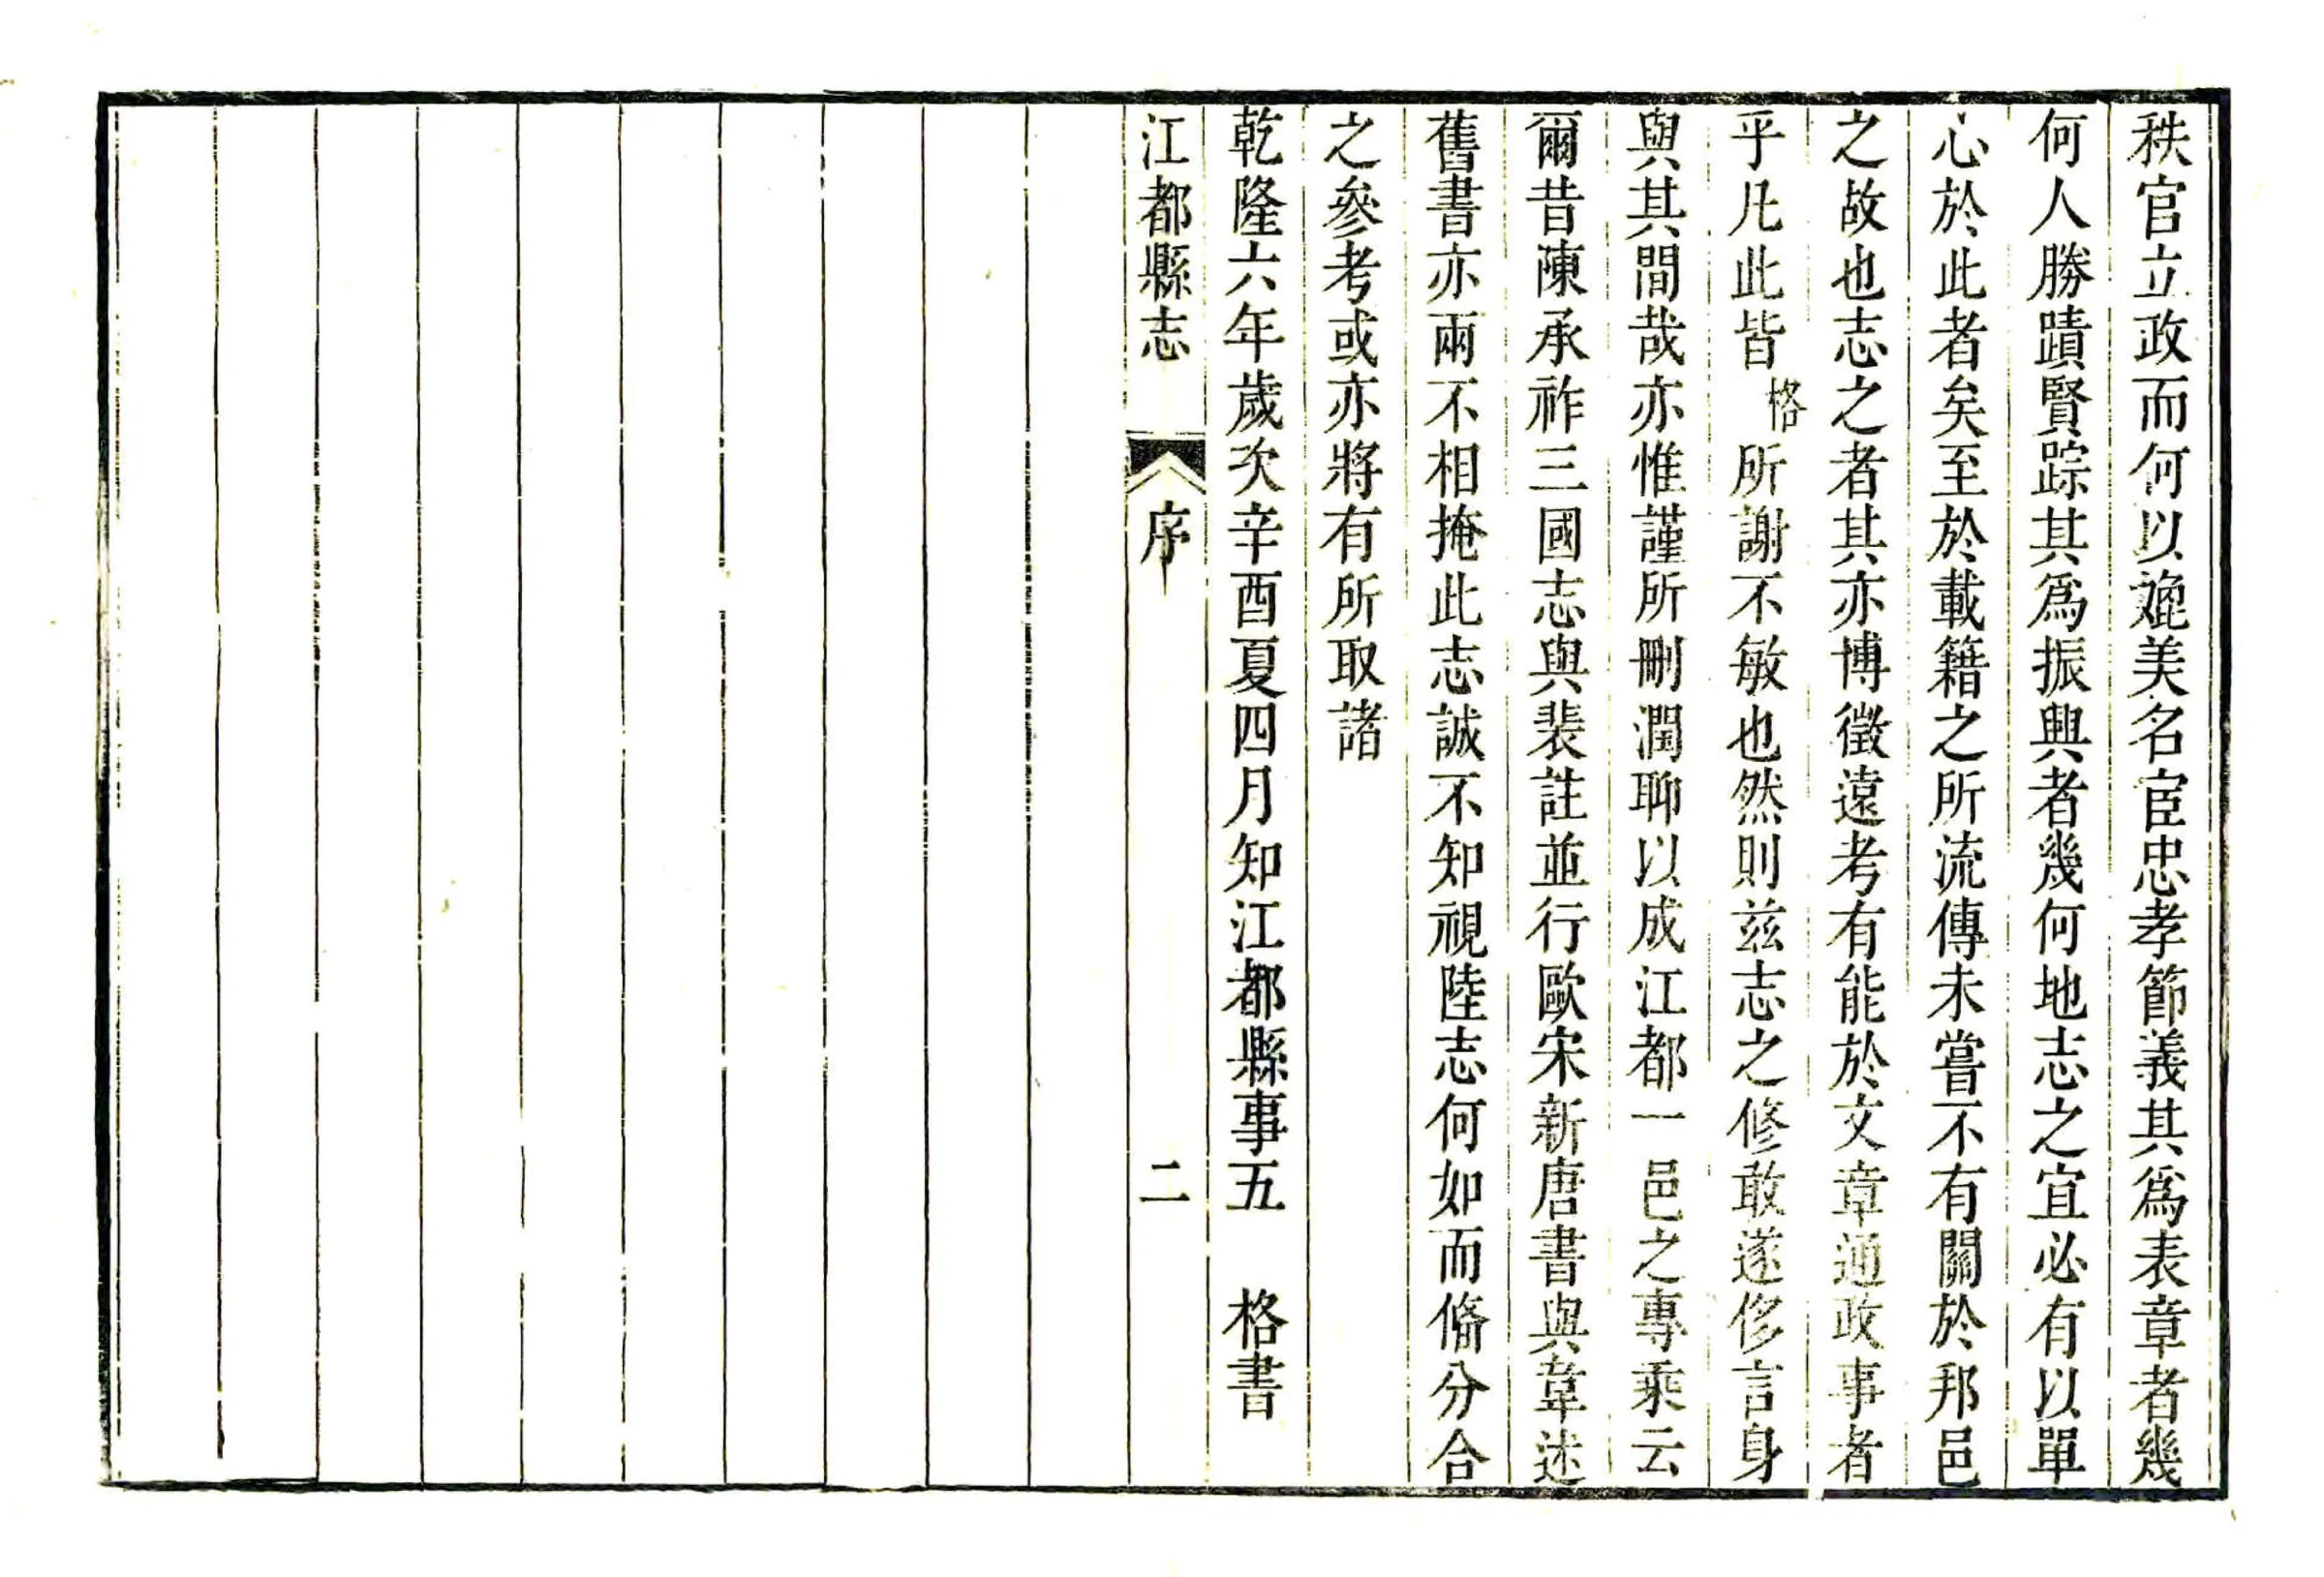 秩官立政而何以媲美名宦忠孝節義其爲表章者幾
何人勝蹟賢踪其爲振興者幾何地志之宜必有以單
心於此者矣至於載籍之所流傳未嘗不有關於邦邑
之故也志之者其亦博徵遠考有能於文章通政事者
乎凡此皆格所謝不敏也然則兹志之修敢遂侈言身
與其間哉亦惟謹所刪潤聊以成江都一邑之專乘云
爾昔陳承祚三國志與裴註並行歐宋新唐書與韋述
舊書亦兩不相掩此志誠不知視陸志何如而脩分合
之參考或亦將有所取諸
乾隆六年歲次辛酉夏四月知江都縣事五 格書
江都縣志 序 二